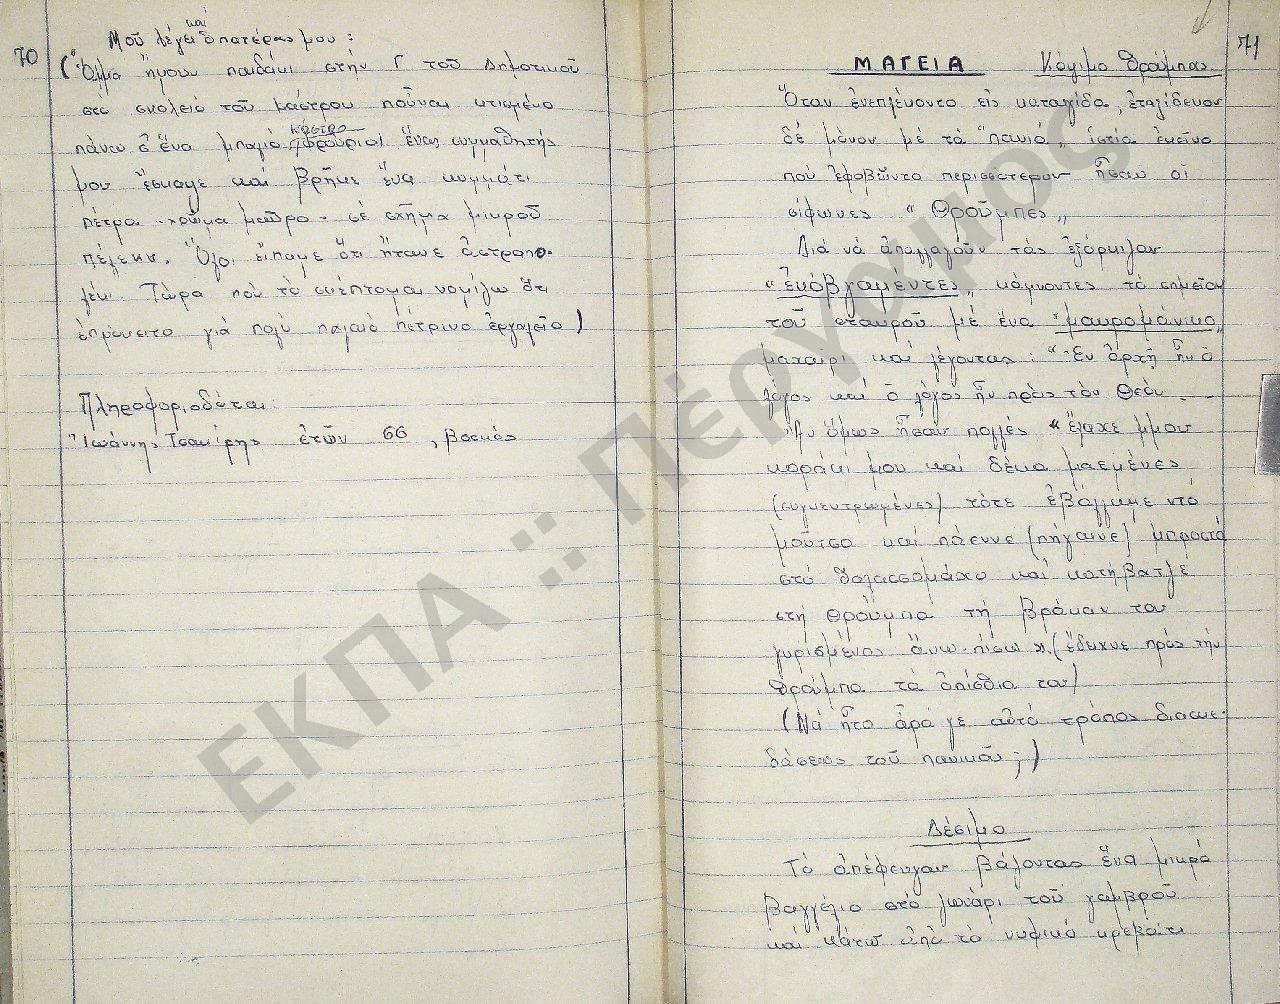 70
καὶ
Μοῦ λέγει ὁ πατέρας μου:
(Ὅμα ἤμουν παιδάκι στὴν Γ τοῦ Δημοτικοῦ
στὸ σχολειὸ τοῦ Κάστρου ποὖναι κτισμένο
κάστρο
πάνω σ' ἕνα μπαμιὸ (φρούριο) ἕνας συμμαθητής
μου ἔσκαψε καὶ βρῆκε ἕνα κομμάτι
πέτρα - χρῶμα μαῦρο - σὲ σχῆμα μικροῦ
πέλεκυ. Ὅλοι εἴπαμε ὅτι ἤτανε ἀστροπε-
λέκι. Τώρα ποὺ τὸ σκέπτομαι νομίζω ὅτι
ἐπρόκειτο γιὰ πολὺ παλαιὸ πέτρινο ἐργαλεῖο)
Πληροφοριοδόται:
Ἰωάννης Τσακίρης ἐτῶν 66, βοσκὸς
71
ΜΑΓΕΙΑ Κόψιμο θρούμπας
Ὅταν ἐνεπλέκοντο εἰς καταιγίδα, ἐταξίδευον
δὲ μόνον μὲ τὰ "πανιά„ ἱστία ἐκεῖνο
ποὺ ἐφοβῶντο περισσότερον ἦσαν οἱ
σίφωνες "Θροῦμπες„
Διὰ νὰ ἀπαλλαγοῦν τὰς ἐξόρκιζαν
"ἐκόβγαμέντες„ κάμνοντες τὸ σημεῖον
τοῦ σταυροῦ μὲ ἕνα "μαυρομάνικο„
μαχαίρι καὶ λέγοντας: "Ἐν ἀρχῇ ἦν ὁ
λόγος καὶ ὁ λόγος ἦν πρὸς τὸν Θεόν.
Ἂν ὅμως ἦσαν πολλὲς "ἔλαχέ μμου
κοράκι μου καὶ δέκα μαεμένες
(συγκεντρωμένες) τότε ἐβάλλαμε ντὸ
μοῦτσο καὶ πάεννε (πήγαινε) μπροστὰ
στὸ θαλασσομάχο καὶ κατήβατζέ
στὴ θρούμπα τὴ βράκαν του
γυρισμένος ἄνω πίσω". (ἔδειχνε πρὸς τὴν
θρούμπα τὰ ὀπίσθια του)
(Νὰ ἦτο ἆρά γε αὐτὸ τρόπος διασκε-
δάσεως τοῦ πανικοῦ;)
Δέσιμο
Τὸ ἀπέφευγαν βάζοντας ἕνα μικρὸ
βαγγέλιο στὸ ζωνάρι τοῦ γαμβροῦ
καὶ κάτω ἀπὸ τὸ νυφικὸ κρεβάτι
ΕΚΠΑ :: Πέργαμος